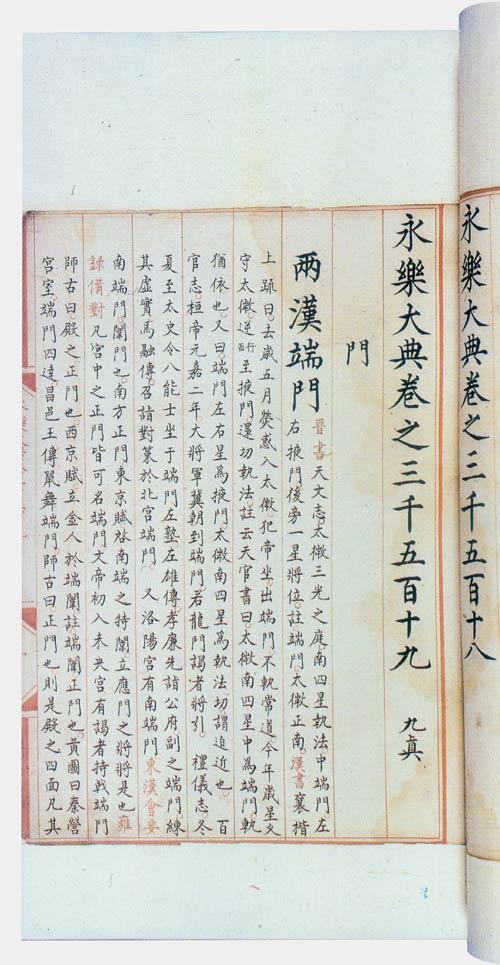 永樂大典卷之三千五百十八
永樂大典卷之三千五百十九 九真
門
兩漢端門
晉書天文志太微三光之庭南四星執法中端門左
右掖門後旁一星將位註端門太微正南漢書襄楷
上疏曰去歲五月熒惑入太微犯帝坐出端門不軌常道今年歲星久
守太微逆行西至掖門還切執法註云天官書曰太微南四星中為端門軌
猶依也又曰端門左右星為掖門太微南四星為執法切謂迫近也 百
官志桓帝元嘉二年大將軍冀朝到端門若龍門謁者將引 禮儀志冬
夏至太史令八能士坐于端門左塾左雄傳孝廉先詣公府副之端門練
其虛實馬融傳召詣對策於北宮端門 又洛陽宮有南端門東漢會要
南端門闈門也南方正門東京賦啓南端之特闈立應門之將將是也雍
錄備對凡宮中之正門皆可名端門文帝初入未央宮有謁者持戟端門
師古曰殿之正門也西京賦立金人於端闈註端闈正門也黃圖曰秦營
宮室端門四達昌邑王傳舞端門師古曰正門也則是殿之四面凡其